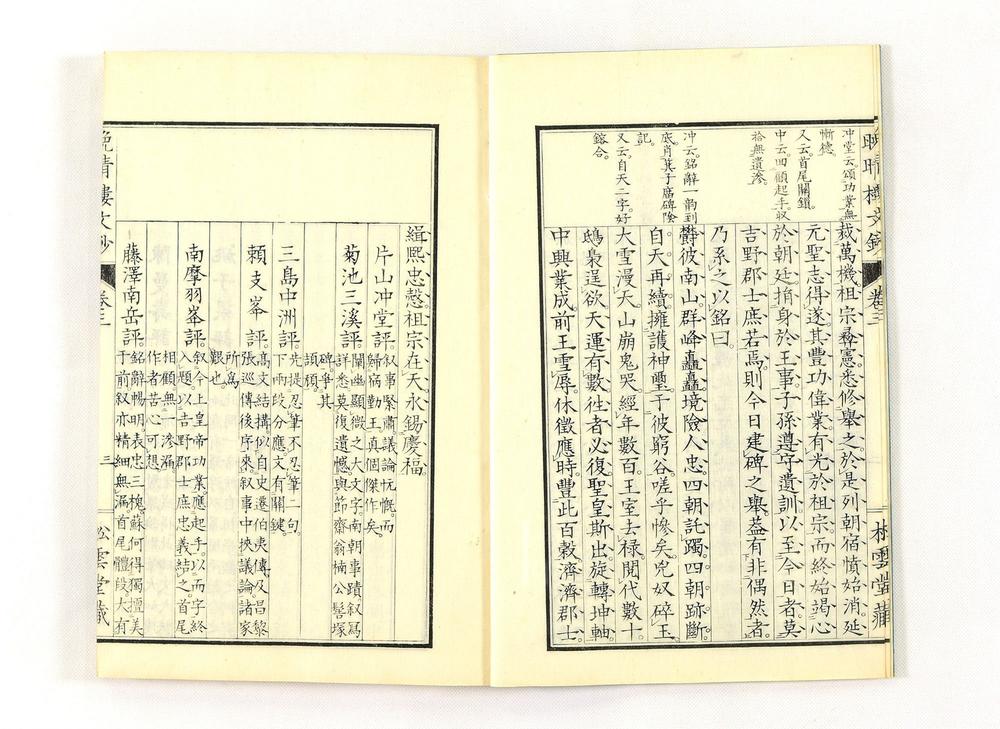 晚晴樓文鈔
卷三
松雲堂藏
沖堂云頌功業無
慚德。
又云首尾關鎖
中云回顧起手。收
拾無遺滲。
沖云。銘辭一韵到
底。肖箕子廟碑陰
記。
又云自天二字。好
鎔合。
裁萬機祖宗彝憲。悉修舉之。於是列朝宿憤始消。延
元聖志得遂。其豐功偉業。有光於祖宗。而終始竭心
於朝廷。捐身於王事。子孫遵守遺訓。以至今日者。莫
吉野郡士庶若焉。則今日建碑之舉。蓋有非偶然者。
乃系之以銘曰。
欝彼南山。群峰矗矗。境險人忠。四朝託躅。四朝跡斷。
自天再續。擁護神璽。于彼窮谷。嗟乎慘矣。兇奴碎玉。
大雪漫天。山崩鬼哭。經年數百。王室去祿。閱代數十。
鴟梟逞欲。天運有數。徃者必復。聖皇斯出。旋轉坤軸。
中興業成。前王雪辱。休徵應時。豐此百穀。濟濟郡士。
緝熙忠慤。祖宗在天。永錫慶福。
片山冲堂評。叙事緊肅。議論忼慨。而
歸宿勤王。眞個傑作矣。
菊池三溪評。闡幽顯微之大文字。南朝事蹟叙寫
詳悉。莫復遺憾。與節齋翁楠公髻塚
碑。爭其
頡頏。
三島中洲評。先提忍筆不忍筆一句。
下兩段分應。文有關鍵。
賴支峯評。高文結搆。似自史遷伯夷傳。及昌黎
張巡傳後序來。叙事中挾議論。諸家
所爲
艱也。
南摩羽峯評。叙今上皇帝功業應起手。以而字終
入題。以吉野郡士庶忠義結之。首尾
相顧。無一滲漏。
作者苦心可想。
藤澤南岳評。銘辭暢明。表忠三槐。蘇何得獨擅美
于前。叙亦精細無漏。首尾體段大有
晚晴樓文鈔
卷三
三
松雲堂藏